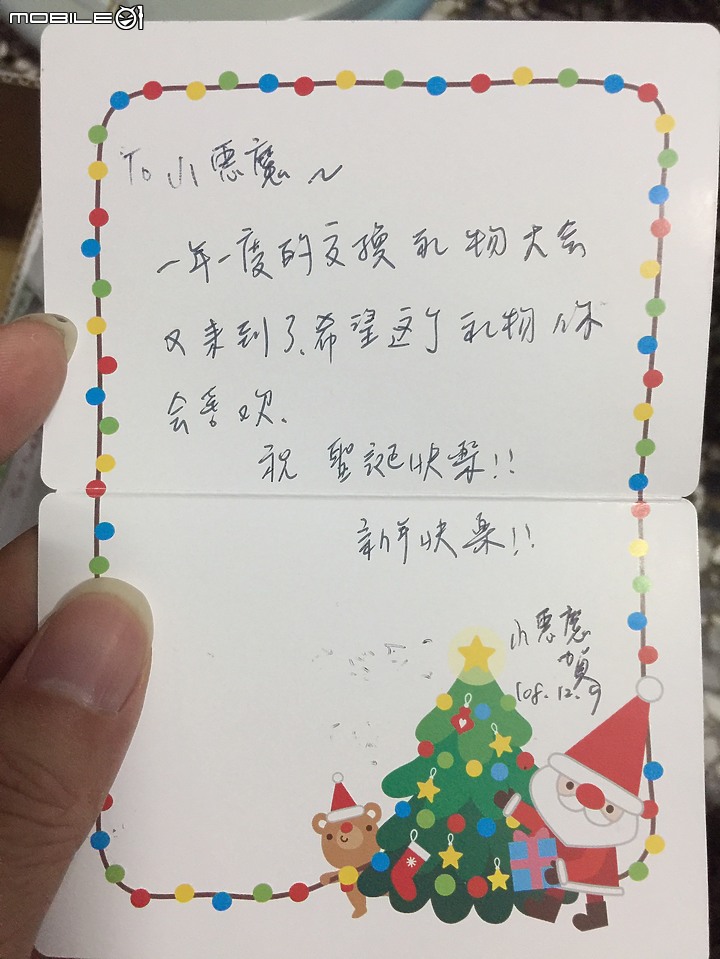 MOBILE01
To 小悪魔~
一年一度的交換礼物大会
又来到了、希望这个礼物你
会喜欢、
祝 聖誕快樂!!
新年快樂!!
小悪魔
賀
108.12.9